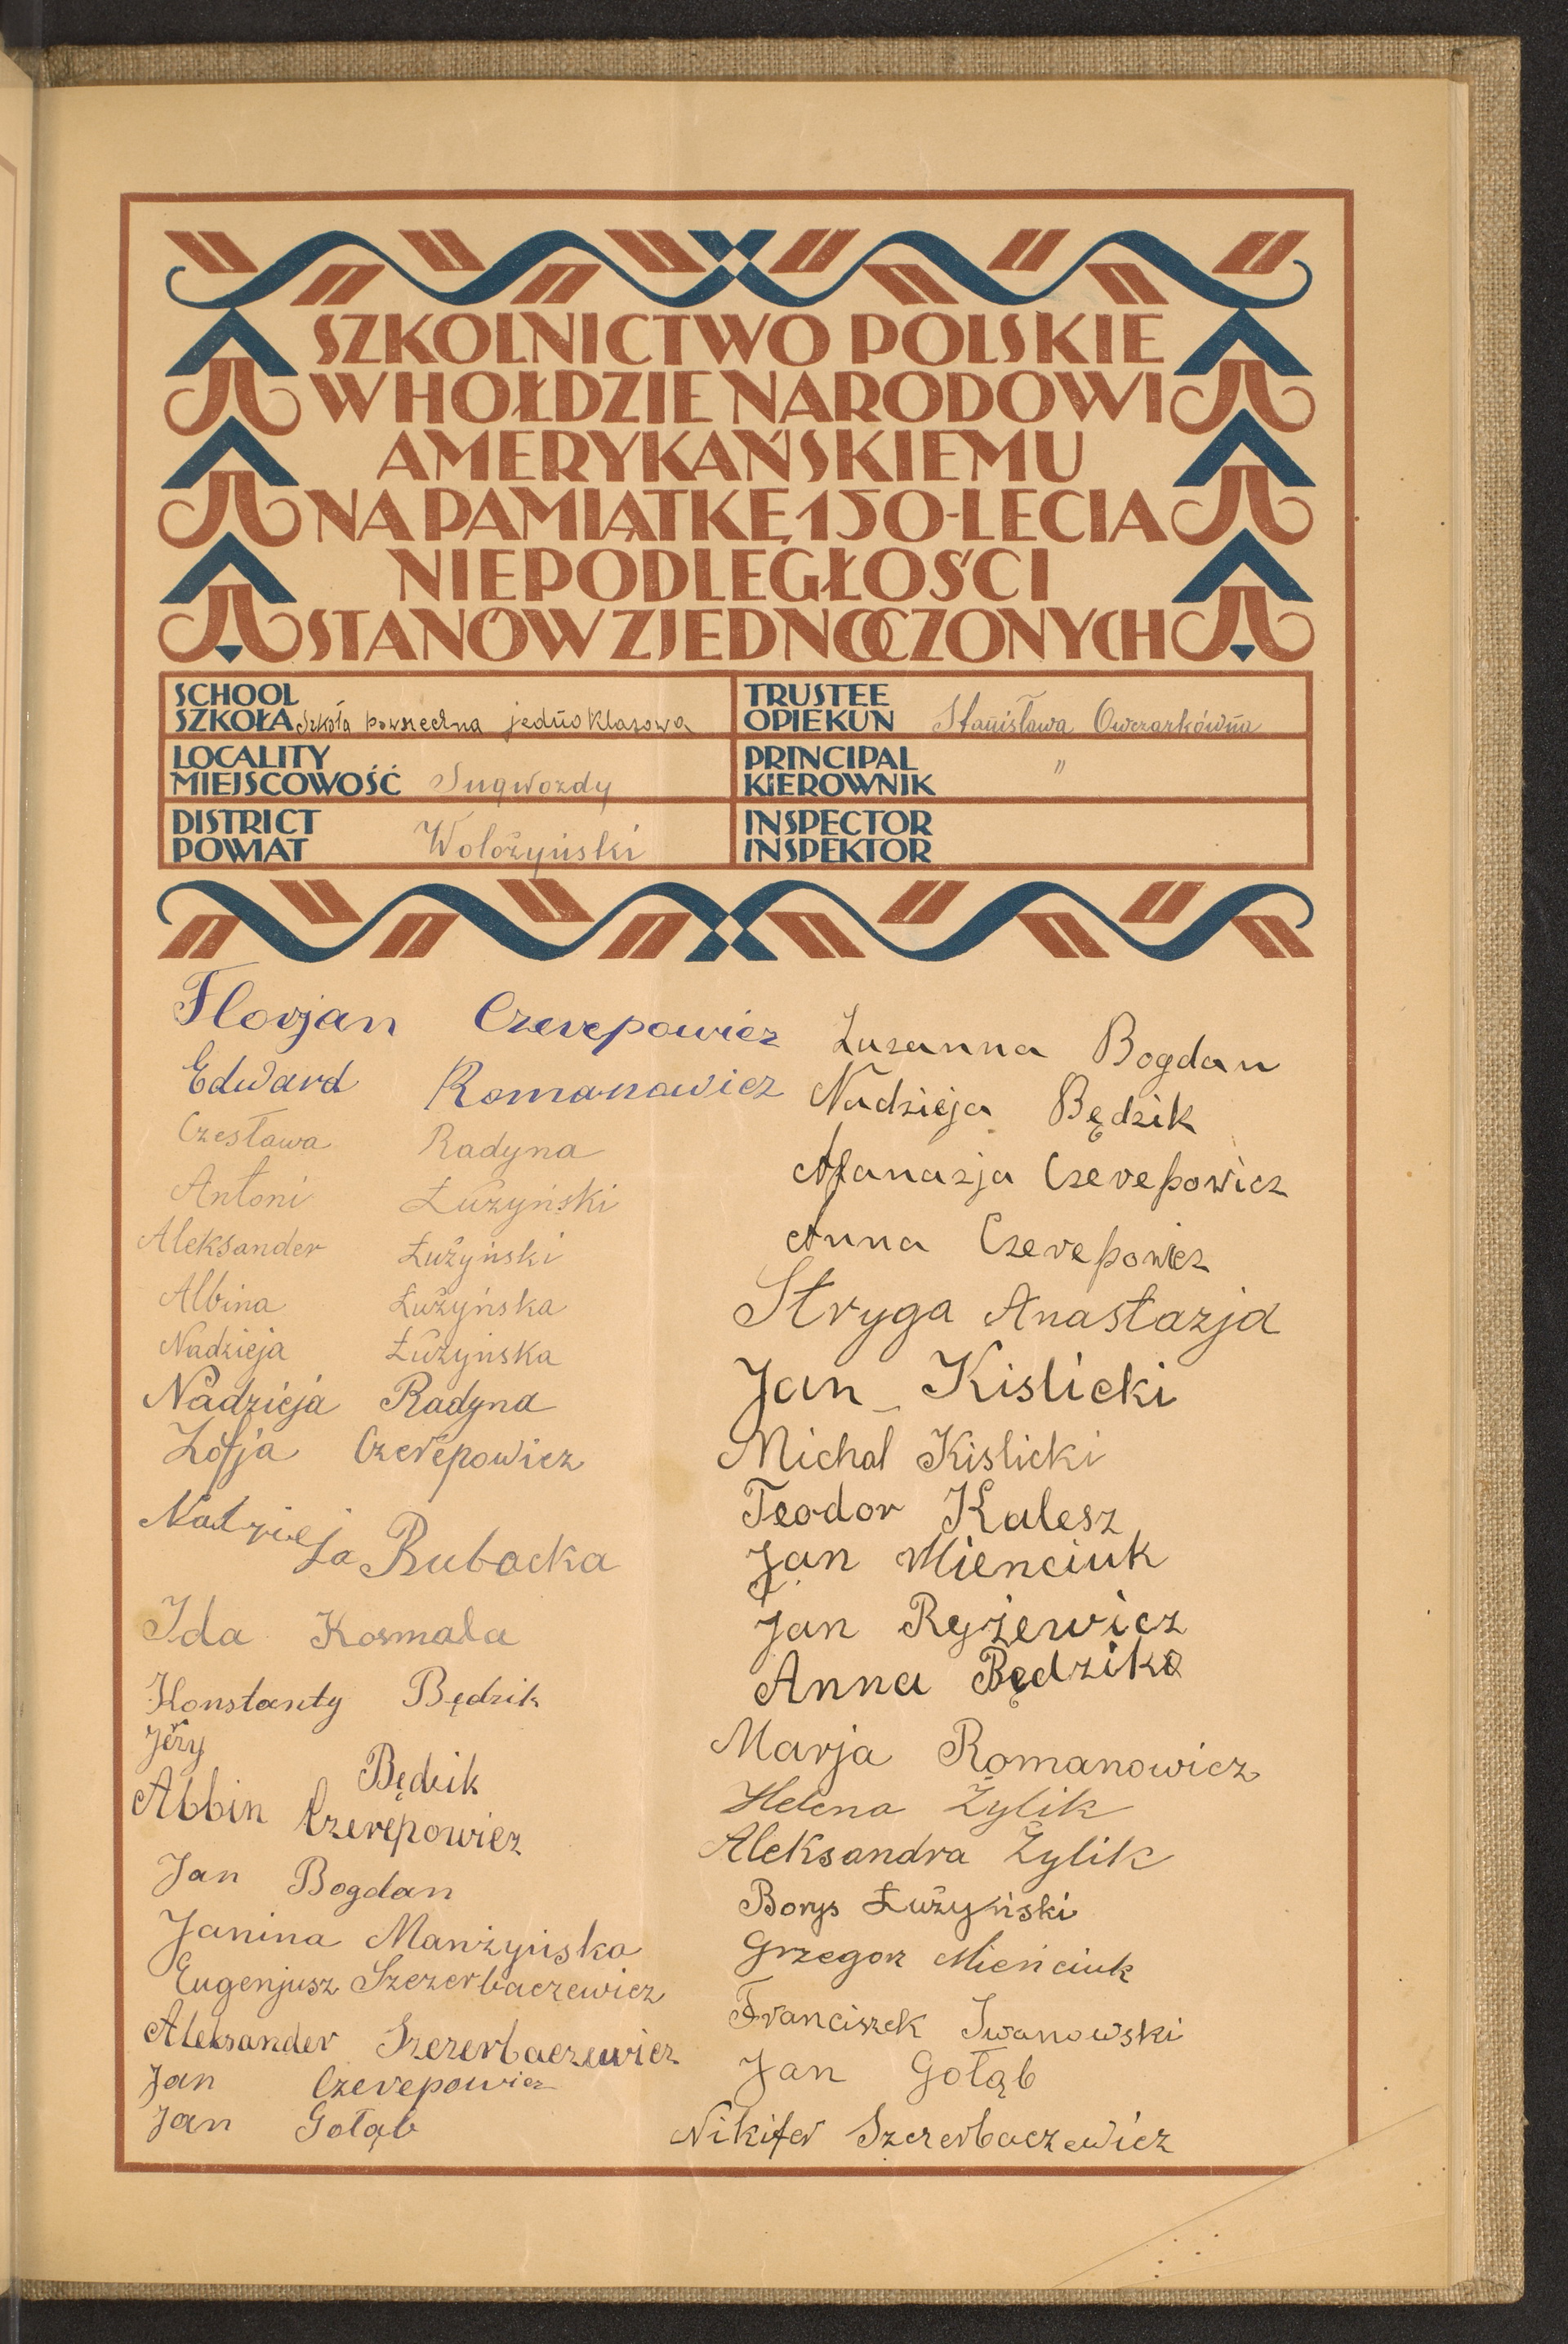 SZKOLNICTWO POLSKIE
W HOŁDZIE NARODOWI
AMERYKAŃSKIEMU
NA PAMIĄTKĘ 150-LECIA
NIEPODLEGŁOŚCI
STANÓW ZJEDNOCZONYCH
SCHOOL
SZKOŁA Szkoła powszechna jednoklasowa
LOCALITY
MIEJSCOWOŚĆ Sugwozdy
DISTRICT
POWIAT Wołożyński
TRUSTEE
OPIEKUN Stanisława Owczarkówna
PRINCIPAL
KIEROWNIK "
INSPECTOR
INSPEKTOR
Florjan Czerepowicz
Edward Romanowicz
Czesława Radyna
Antoni Łużyński
Aleksander Łużyński
Albina Łużyńska
Nadzieja Łużyńska
Nadzieja Radyna
Zofja Czerepowicz
Nadzieja Rubacka
Ida Kosmala
Konstanty Będzik
Jerzy Będzik
Albin Czerepowicz
Jan Bogdan
Janina Manżyńska
Eugenjusz Szczerbaczewicz
Aleksander Szczerbaczewicz
Jan Czerepowicz
Jan Gołąb
Zuzanna Bogdan
Nadzieja Będzik
Afanazja Czerepowicz
Anna Czerepowicz
Stryga Anastazja
Jan Kislicki
Michał Kislicki
Teodor Kalesz
Jan Mienciuk
Jan Ryżewicz
Anna Będzik
Marja Romanowicz
Helena Żylik
Aleksandra Żylik
Borys Łużyński
Grzegorz Mieńciuk
Franciszek Iwanowski
Jan Gołąb
Nikifer Szczerbaczewicz